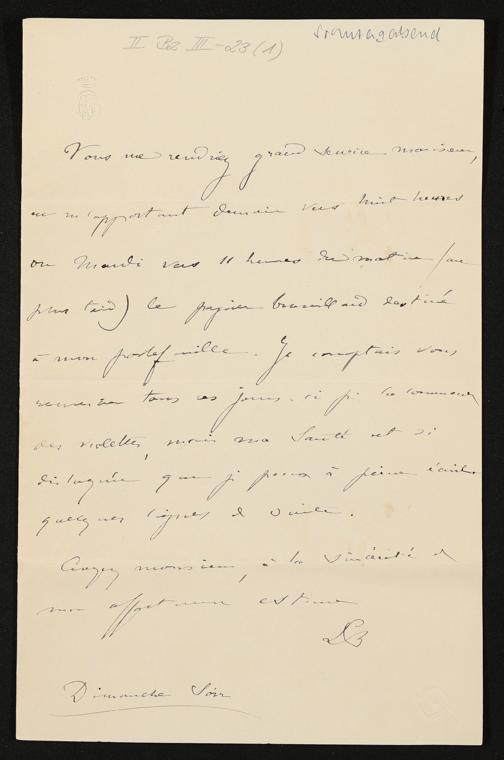 II Bz III-23 (1)
Sonntagabend
Vous me rendriez grand service monsieur,
en m'apportant demain vers huit heures
ou Mardi vers 11 heures du matin (au
plus tard) le papier brouillard destiné
à mon portefeuille. Je comptais vous
tous ces jours-ci
des violettes, mais ma Santé est si
que je peux à peine écrire
quelques lignes de suite.
Croyez monsieur, à la sincérité de
mon affectueuse estime
LB
Dimanche Soir